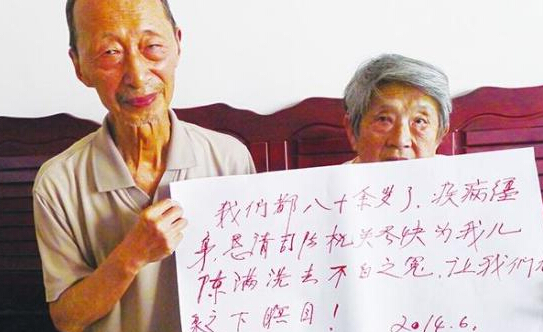 我们都八十余岁了，疾病缠
身，恳请司法机关尽快为我儿
陈满洗去不白之冤，让我们
之下瞑目！
2014.6.